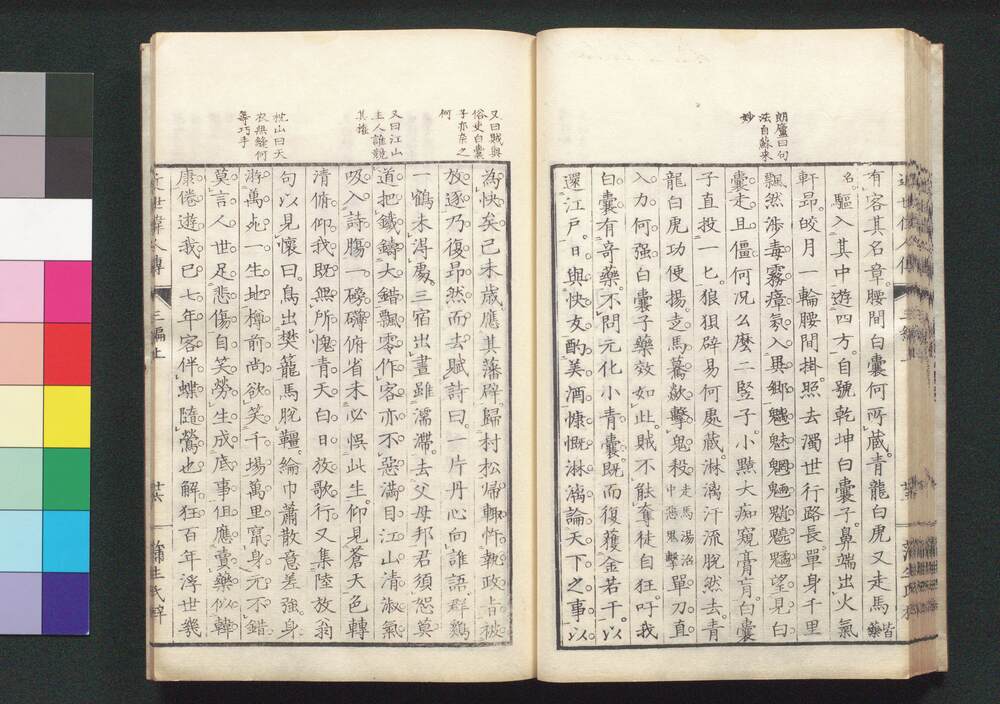 朗廬曰句
法自蘇来
妙
有客其名章腰間白囊何所蔵青龍白虎又走馬皆藥
名驅入其中遊四方自號乾坤白囊子鼻端出火氣
軒昂皎月一輪腰間掛照去濁世行路長單身千里
飄然渉毒霧瘴氛入異郷魑魅魍魎望見白
囊走且僵何況么麼二竪子小黠大痴窺膏肓白囊
子直投一匕狼狽辟易何處蔵淋漓汗流脫然去青
龍白虎功便揚走馬驀歘擊鬼殺走馬湯治中悪鬼擊單刀直
入力何强白囊子藥效如此賊不能奪徒自狂吁我
白囊有奇藥不問元化小青囊既而復獲金若干以
還江戸日與快友酌美酒慷慨淋漓論天下之事以
又曰賊與
俗吏白囊
子亦奈之
何
又曰江山
主人誰競
其推
枕山曰天
衣無縫何
等巧手
為快矣己未歳應其藩辟歸村松帰輙忤執政旨被
放逐乃復昂然而去賦詩曰一片丹心向誰語群鷄
一鶴未得處三宿出晝雖濡滯去父母邦君須恕莫
道把鐵鑄大錯飄零作客亦不惡滿目江山清淑氣
吸入詩膓一磅礴俯省未必悞此生仰見蒼天色轉
清俯仰我既無所愧青天白日放歌行又集陸放翁
句以見懷曰鳥出樊籠馬脫韁綸巾蕭散意差強身
游萬死一生地樽前尚欲笑千場萬里竄身元不錯
莫言人世足悲傷自笑勞生成底事但應賣藥似韓
康倦遊我已七年客伴蝶隨鶯也解狂百年浮世幾
近世偉人傳
三編上
蒲生氏梓